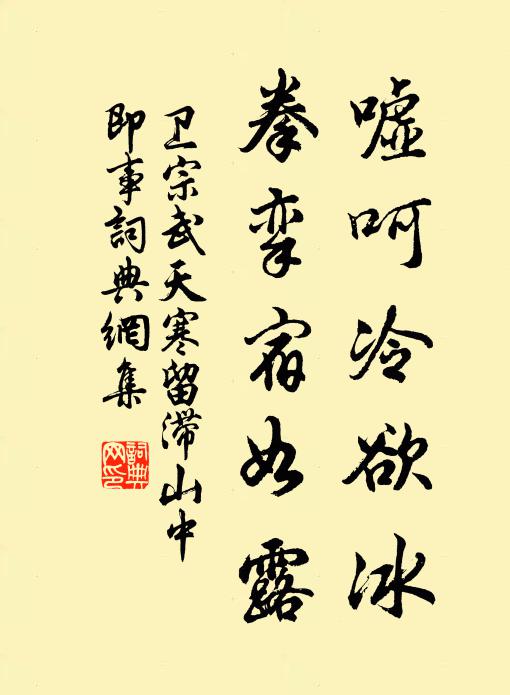 嘘呵冷欲冰
拳挛宿如露
卫宗武天寒留滞山中
即事詞典網集
詞典
网印